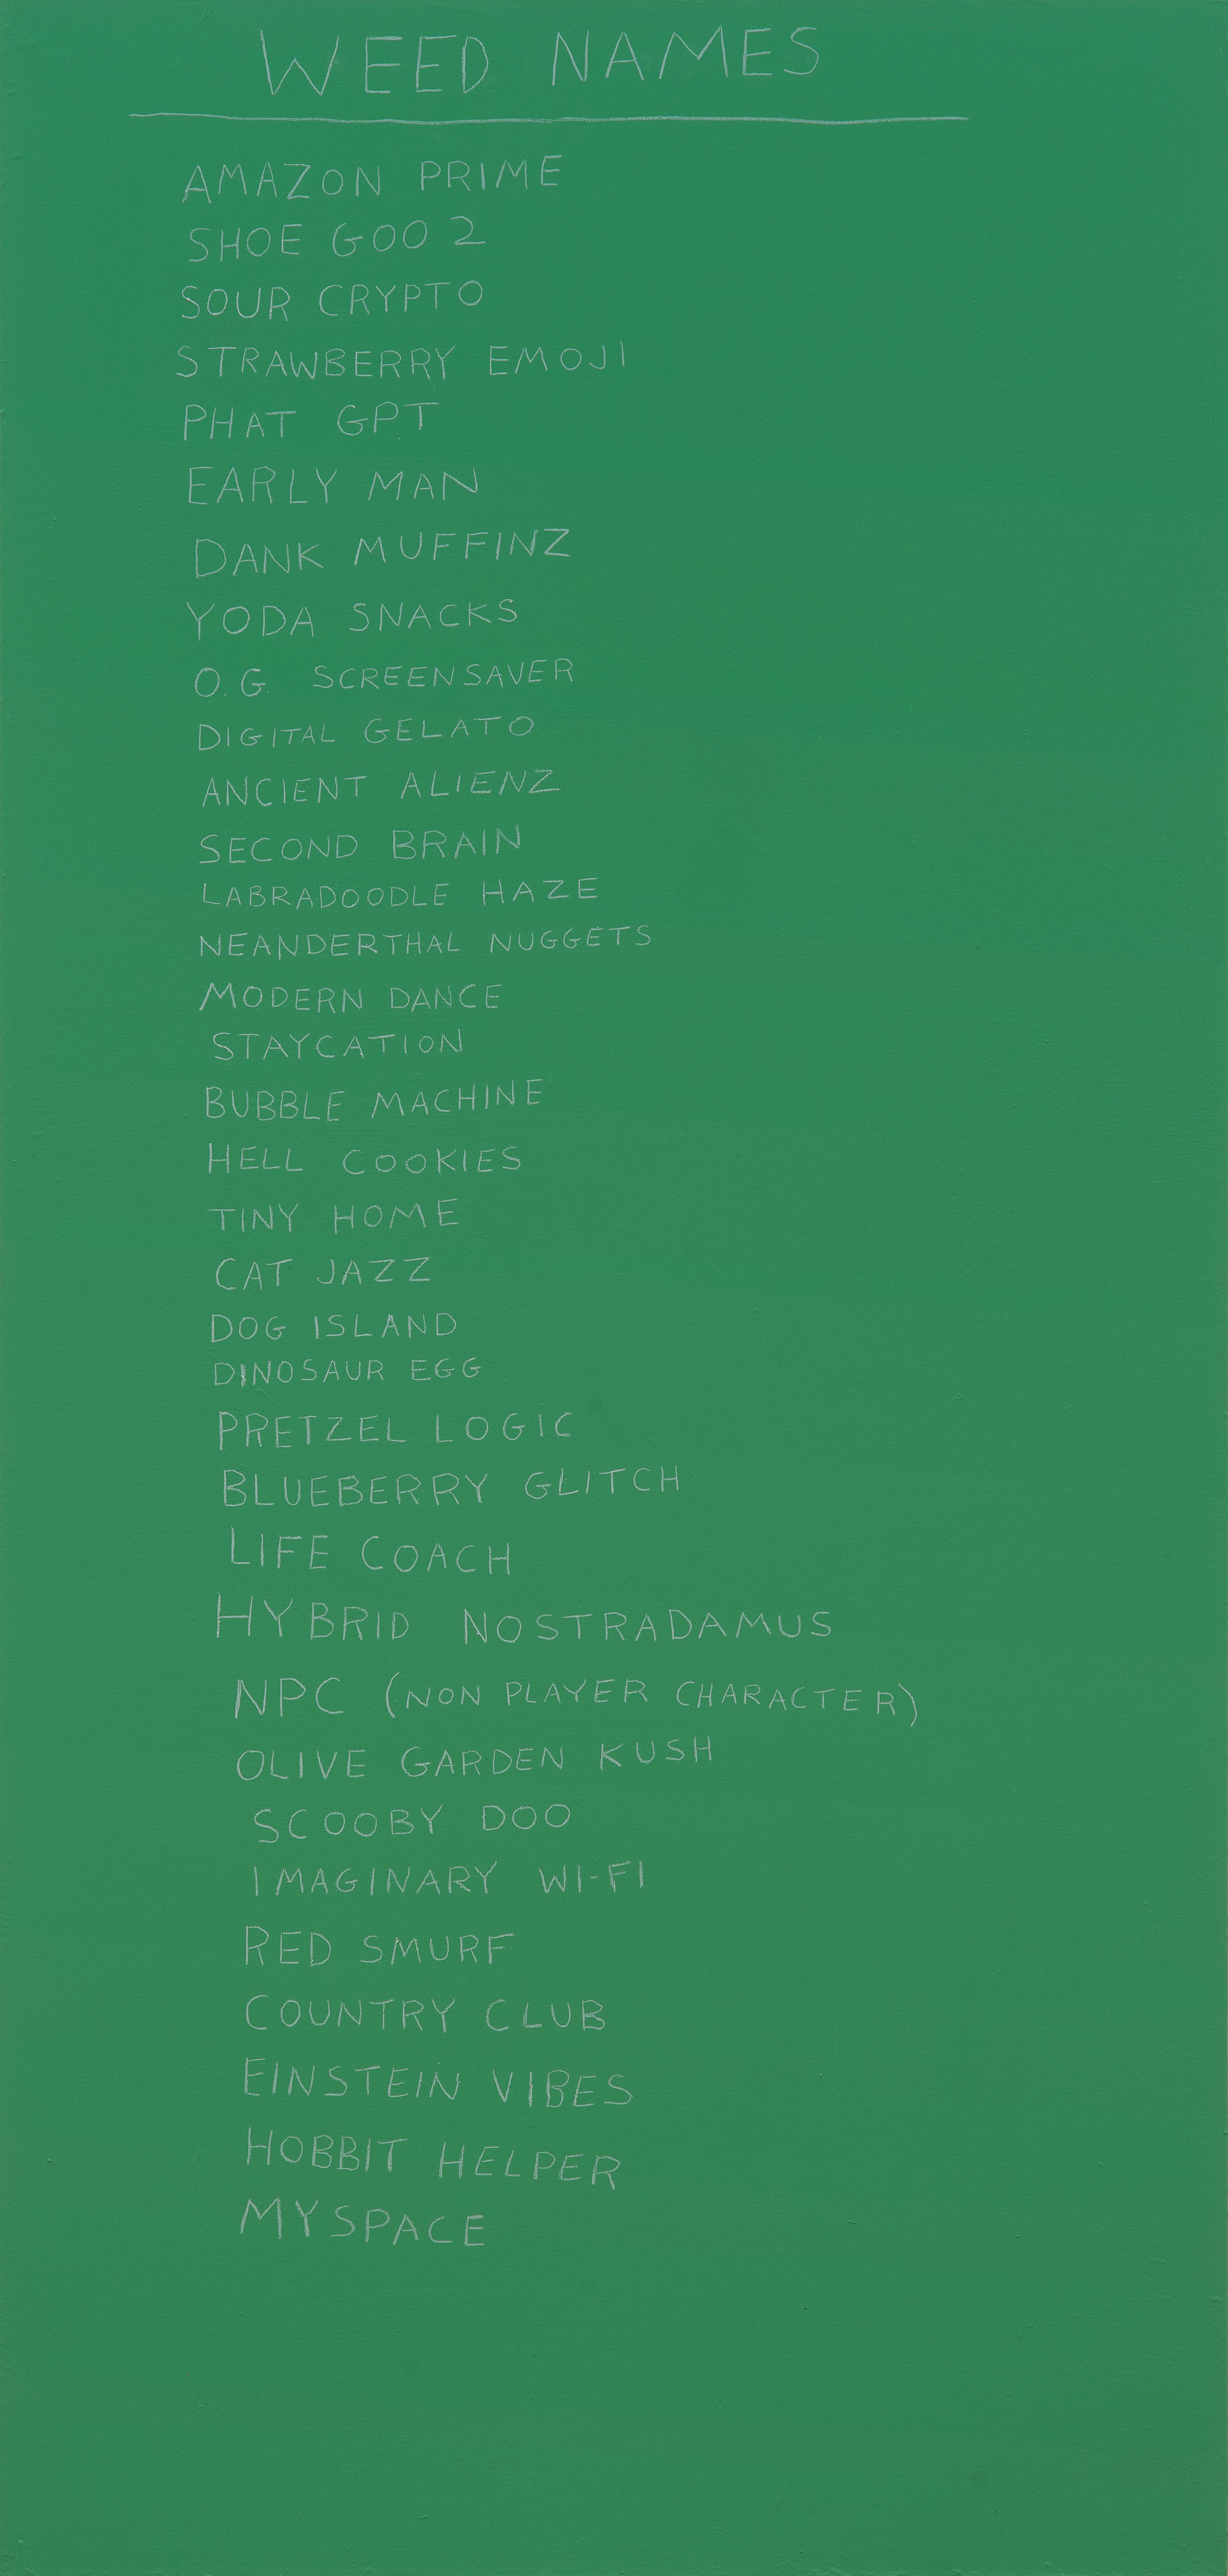 WEED NAMES
AMAZON PRIME
SHOE GOO 2
SOUR CRYPTO
STRAWBERRY EMOJI
PHAT GPT
EARLY MAN
DANK MUFFINZ
YODA SNACKS
O.G. SCREENSAVER
DIGITAL GELATO
ANCIENT ALIENZ
SECOND BRAIN
LABRADOODLE HAZE
NEANDERTHAL NUGGETS
MODERN DANCE
STAYCATION
BUBBLE MACHINE
HELL COOKIES
TINY HOME
CAT JAZZ
DOG ISLAND
DINOSAUR EGG
PRETZEL LOGIC
BLUEBERRY GLITCH
LIFE COACH
HYBRID NOSTRADAMUS
NPC (NON PLAYER CHARACTER)
OLIVE GARDEN KUSH
SCOOBY DOO
IMAGINARY WI-FI
RED SMURF
COUNTRY CLUB
EINSTEIN VIBES
HOBBIT HELPER
MYSPACE